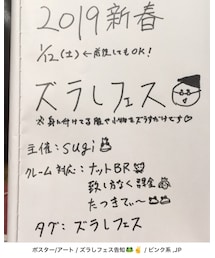 2019新春
1/12(土)←感性してもOK!
ズラしフェス
※身に付けてる服や小物をズラすだけです♡
主催:sugi
クレーム対応:ナットBR
致し方なく課金
たつきてぃ〜
タグ:ズラしフェス
ポスター/アート / ズラしフェス告知🐸✌️ / ピンク系 _JP